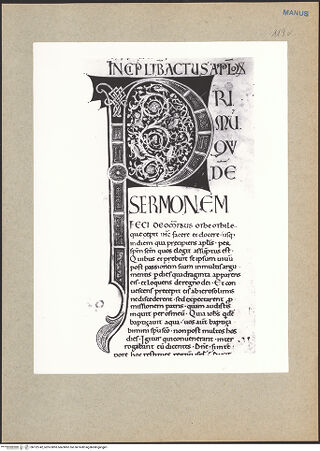 MANUS
119v
INCIP LIB ACTUŪ APLOR
PRI
MŪ
QV
DĒ
SERMONEM
FECI DE OMNIBUS O THEOPHILE
que cepit ihc facere et docere usq;
in diem qua precipiens aplis per
spm scm quos elegit assuptus est
Quibus et prebuit se ipsum uiuu
post passionem suam in multis argu
mentis p dies quadraginta apparens
eis et loquens de regno dei. Et con
uescens precepit eis ab hierosolimis
ne discederent sed expectarent p
missionem patris quam audistis
inquit per os meu. Quia iohs qde
baptizauit aqua uos aut baptiza
bimini spu sco non post multos hos
dies. Igitur qui conuenerant inter
rogabant eu dicentes. Dne si in te
pore hoc restitues regnu isrl Dixit